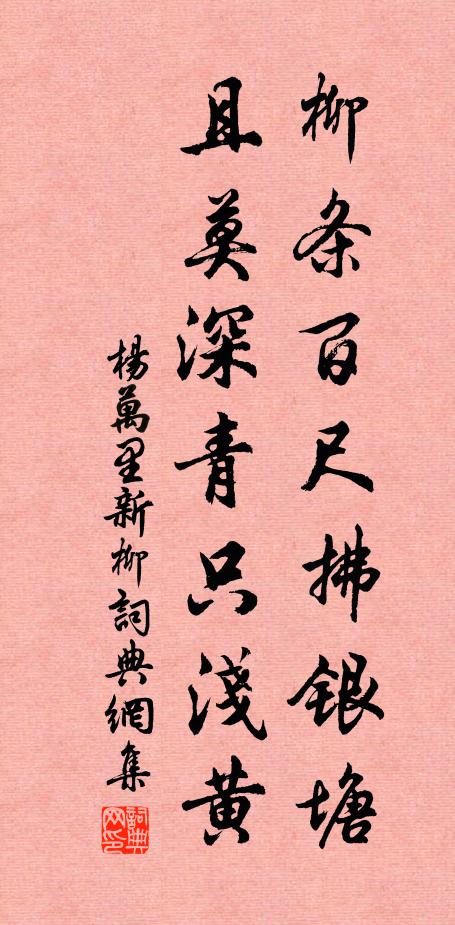 柳条百尺拂银塘
且莫深青只浅黄
楊萬里新柳詞典網集
詞典网印